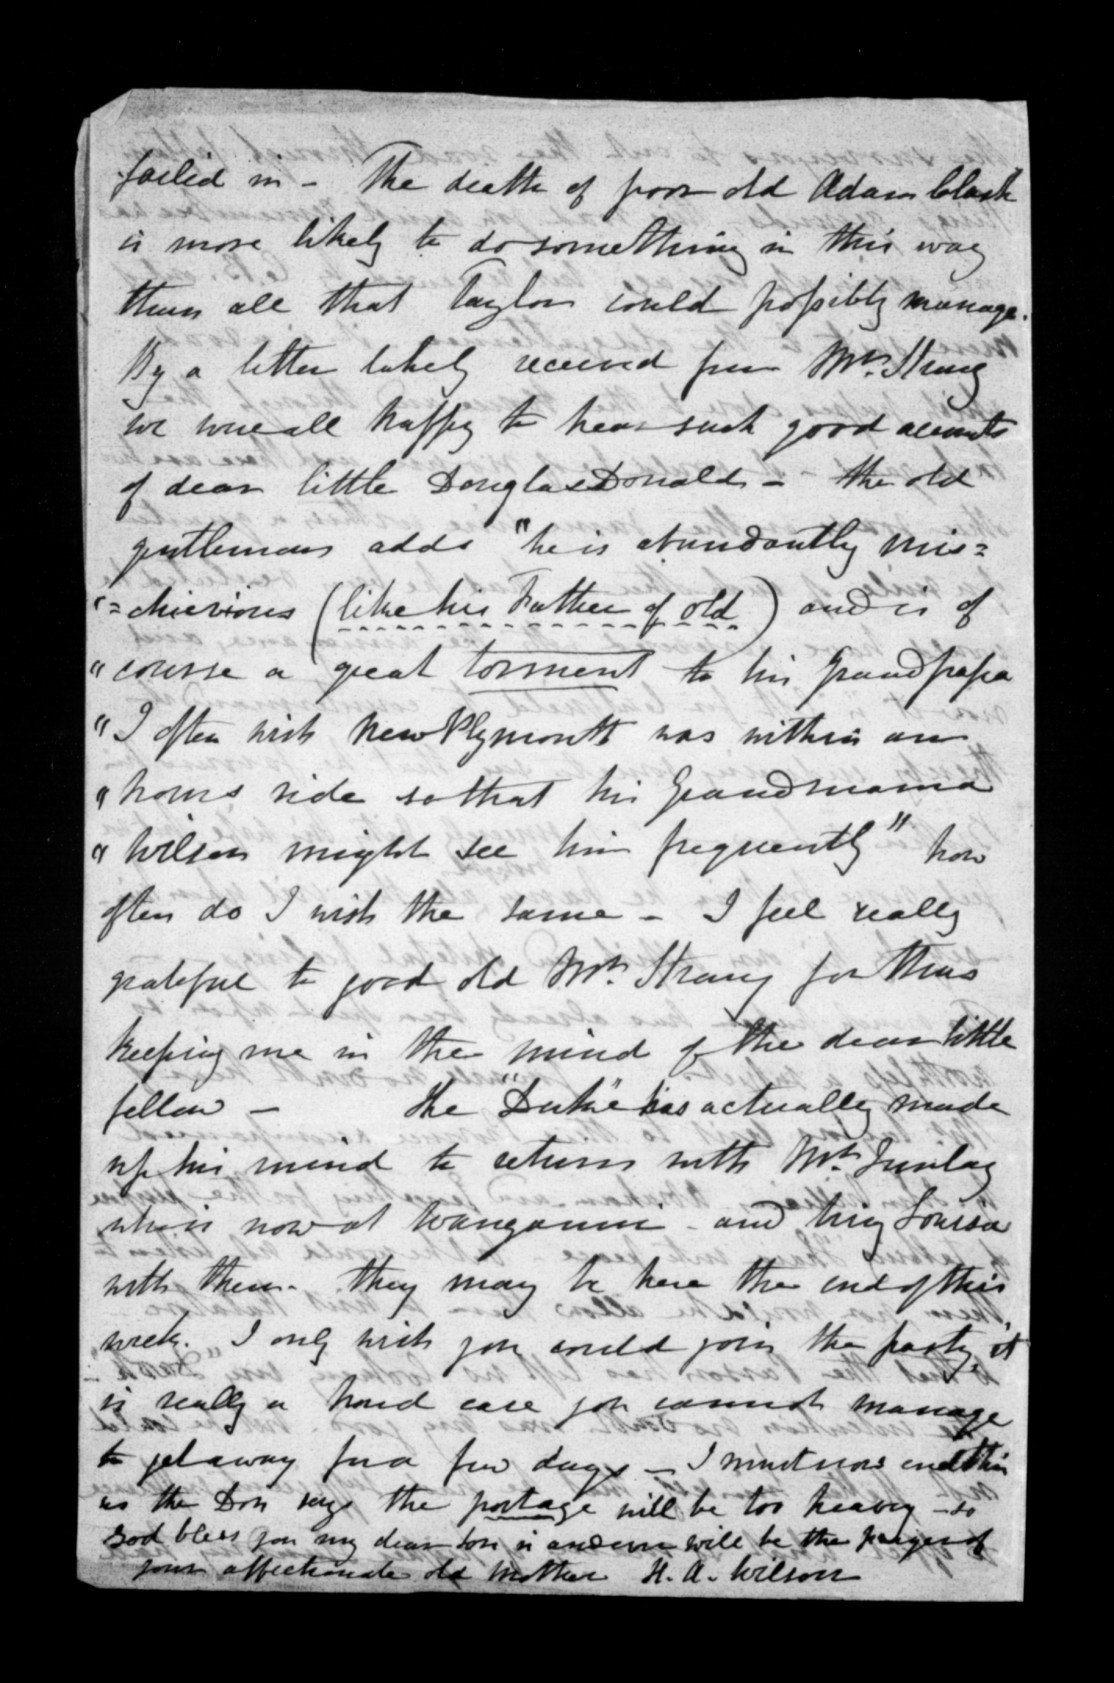 failed in - The death of poor old Adam Clark
is more likely to do something in this way
than all that Taylor could possibly manage.
By a letter lately received from Mr. Strang
we were all happy to hear such good accounts
of dear little Douglas Donald - the old
gentleman adds "he is abundantly mis=
"=chievious (like his Father of old) and is of
"course a great torment to his Grandpapa
"I often wish New Plymouth was within an
"hours ride so that his Grandmama
"Wilson might see him frequently" how
often do I wish the same - I feel really
grateful to good old Mr. Strang for thus
keeping me in the mind of the dear little
fellow - the "Duke" has actually made
up his mind to return with Mr.
who is now at Wanganui - and bring Louisa
with them. they may be here the end of this
week. I only wish you could join the party, it
is really a hard case you cannot manage
to get away for a few days - I must now end this
as the Don says the postage will be too heavy - so
God bless you my dear son is and ever will be the prayer of
your affectionate old Mother H. A. Wilson